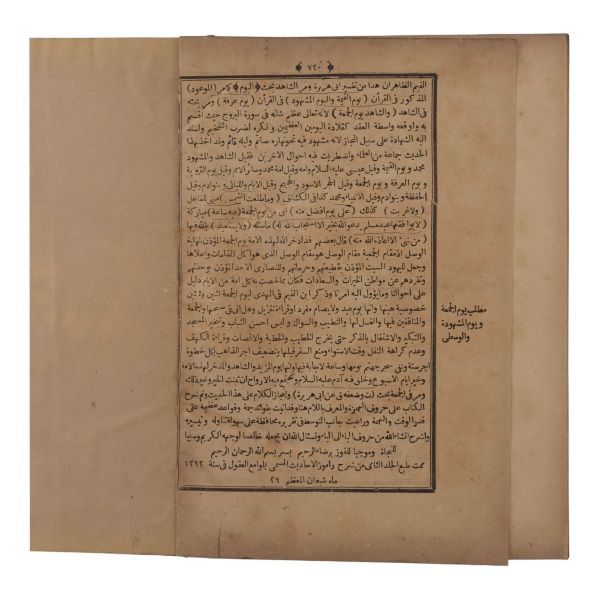 ﴿ ٧٢٠ ﴾
القيم الظاهران هذا من تفسير ابى هريرة ومر الشاهد بحث ﴿ اليوم ﴾ كامر (الموعود)
المذكور فى القرأن (يوم القيمة واليوم المشهود) فى القرأن (يوم عرفة) ومر بدئه
فى الشاهد (والشاهد يوم الجمعة) لانه تعالى عظم شانه فى سورة البروج حيث اقسم
به واوقعه واسطة العقد كقلادة اليومين العظيمين ونكره لضرب التفخيم واسند
اليه الشهادة على سبيل المجاز لانه مشهود فيه نحو نهاره صائم وليله قائم
الحديث جماعة من العلماء واضطربت فيه احوال الاخرين فقيل الشاهد والمشهود
محمد ويوم القيمة وقيل عيسى عليه السلام وامه وقيل امة محمد وسائر الامم وقيل يوم التروية
ويوم العرفة ويوم الجمعة وقيل الحجر الاسود والحجيج وقيل الايام والليالى وبنو ادم وقيل
الحفظة وبنو ادم وقيل الانبياء ومحمد كذا فى الكشاف (وما طلعت الشمس) مبنى للفاعل
(ولا غربت) كذلك (على يوم افضل منه) اى من يوم الجمعة (فيه ساعة) مباركة
(لا يوافقها عبد مسلم يدعو الله بخير الا استجاب الله له) ما سئله (ولا يستعيذ) بالله وبها
(من شئ الا اعاذه الله منه) قال بعضهم قد ادخر الله لهذه الامة يوم الجمعة المؤذن بنهاية
الوصل اذ مقام الجمعية مقام الوصل هو مقام الوصل الذى هو اكمل المقامات واعلاها
وجعل لليهود السبت المؤذن بقطيعتهم وحرمانهم وللنصارى الاحد المؤذن بوحدتهم
وتفردهم عن مواطن الخيرات والسعادات فكان ما خصت به كل امة من الايام دليل
على احوالها وما يؤول اليه امرنا وذكر ابن القيم فى الهدى ليوم الجمعة اثنين وثلثين
خصوصية هيئتها وانها يوم عيد ولا يصام مفرد او قراءة تنزيل وهل اتى فى صبحها والجمعة
والمنافقين فيها والغسل لها والتطيب والسواك ولبس احسن الثياب وتبخير المسجد
والتبكير والاشتغال بالذكر حتى يخرج الخطيب والخطبة والانصات وقراءة الكهف
وعدم كراهة النفل وقت الاستواء ومنع السفر قبلها وتضعيف اجر الذاهب بكل خطوة
اجر سنة ونفى سجر جهنم يومها وساعة الاجابة فيها وانها يوم المزيد والشاهد والمدخر لهذه الامة
وخير ايام الاسبوع وخلق فيه آدم عليه السلام وتجتمع فيه الارواح ان ثبت الخبر وغير ذلك
ومر فى الجمعة بحث (ت وضعفه ق عن ابى هريرة) ونجاز الكلام على هذا الحديث وتم شرح
الكتاب على حروف الهمزة والمعرف باللام هنا وقد اتيت بفوائد جمة وقواعد عظيمة على
قدر الوقت والهمة وراعيت جانب التوسط فى تقريره محافظة على سهولة تناوله وتيسيره
واشرح انشاء الله من حروف الباء الى الياء ونسئال الله ان يجعله خالصا لوجهه الكريم وسببا
للنجاة وموجبا للفوز برضاء الرحيم يسر بسم الله الرحمان الرحيم
تمت طبع الجلد الثانى من شرح راموز الاحاديث المسمى بلوامع العقول فى سنة ١٢٩٢
ماه شعبان المعظم ٢٩
مطلب يوم الجمعة
ويوم المشهودة
والوسطى